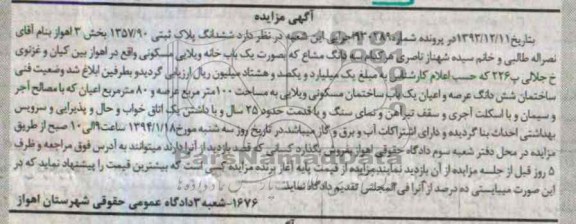 آگهی مزایده
بتاریخ ۱۳۹۳/۱۲/۱۱ در پرونده شماره ۹۲۰۲۸۹ اجرایی این شعبه در نظر دارد ششدانگ پلاک ثبتی ۱۳۵۷/۹۰ بخش ۳ اهواز بنام آقای
نصراله طالبی و خانم سیده شهناز ناصری هرکدام سه دانگ مشاع که بصورت یک باب خانه ویلایی مسکونی واقع در اهواز بین کیان و غزنوی
خ جلالی پ ۲۲۶ که حسب اعلام کارشناس به مبلغ یک میلیارد و یکصد و هشتاد میلیون ریال ارزیابی گردیدو بطرفین ابلاغ شد وضعیت فنی
ساختمان شش دانگ عرصه و اعیان یک باب ساختمان مسکونی ویلایی به مساحت ۱۰۰ متر مربع عرصه و ۸۰ مترمربع اعیان که با مصالح آجر
و سیمان و با اسکلت آجری و سقف تیرآهن و نمای سنگ و با قدمت حدود ۲۵ سال و با داشتن یک اتاق خواب و حال و پذیرایی و سرویس
بهداشتی احداث بنا گردیده و دارای اشتراکات آب و برق و گاز میباشد.در تاریخ روز سه شنبه مورخ ۱۳۹۴/۱/۱۸ ساعت ۹ الی ۱۰ صبح از طریق
مزایده در محل دفتر شعبه سوم دادگاه حقوقی اهواز بفروش بگذارد کسانی که قصد بازدید از آنرا دارند میتوانند به آدرس فوق مراجعه و ظرف
۵ روز قبل از جلسه مزایده از آن بازدید نمایند.مزایده از قیمت پایه آغاز برنده مزایده کسی است که بیشترین قیمت را پیشنهاد نماید که در
این صورت میبایستی ده درصد از آنرا فی المجلس تقدیم دادگاه نماید
۱۶۷۶-شعبه ۳ دادگاه عمومی حقوقی شهرستان اهواز